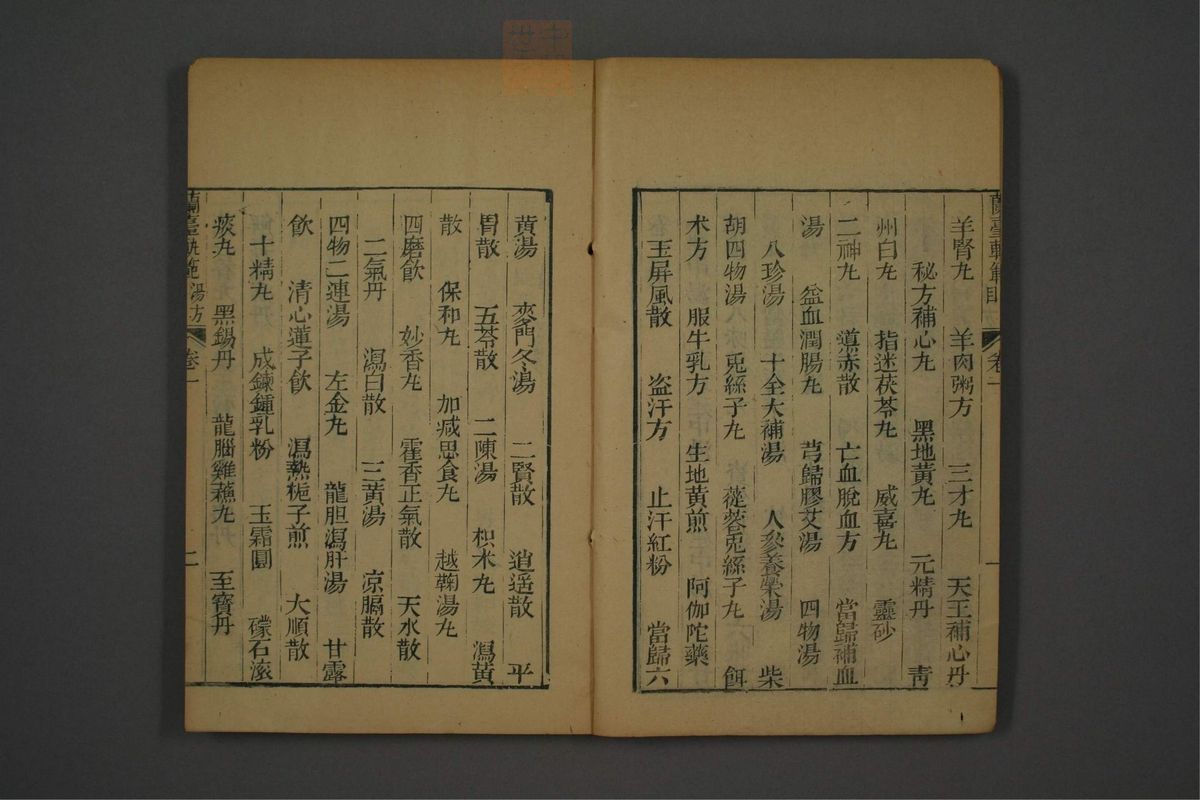 羊腎丸 羊肉粥方 三才丸 天王補心丹
秘方補心丸 黑地黃丸 元精丹 青
州白丸 指迷茯苓丸 威喜丸 靈砂
二神丸 導赤散 亡血脫血方 當歸補血
湯 益血潤腸丸 芎歸膠艾湯 四物湯
八珍湯 十全大補湯 人參養榮湯 柴
胡四物湯 兎絲子丸 蓯蓉兎絲子丸 餌
术方 服牛乳方 生地黃煎 阿伽陀藥
玉屏風散 盗汗方 止汗紅粉 當歸六
蘭臺軌範目 卷一 一
黃湯 麥門冬湯 二賢散 逍遥散 平
胃散 五苓散 二陳湯 枳术丸 瀉黃
散 保和丸 加减思食丸 越鞠湯丸
四磨飲 妙香丸 藿香正氣散 天水散
二氣丹 瀉白散 三黃湯 凉膈散
四物二連湯 左金丸 龍胆瀉肝湯 甘露
飲 清心蓮子飲 瀉熱梔子煎 大順散
十精丸 成鍊鍾乳粉 玉霜圓 礞石滚
痰丸 黑錫丹 龍腦雞蘓丸 至寶丹
蘭臺軌範 湯方 卷一 二